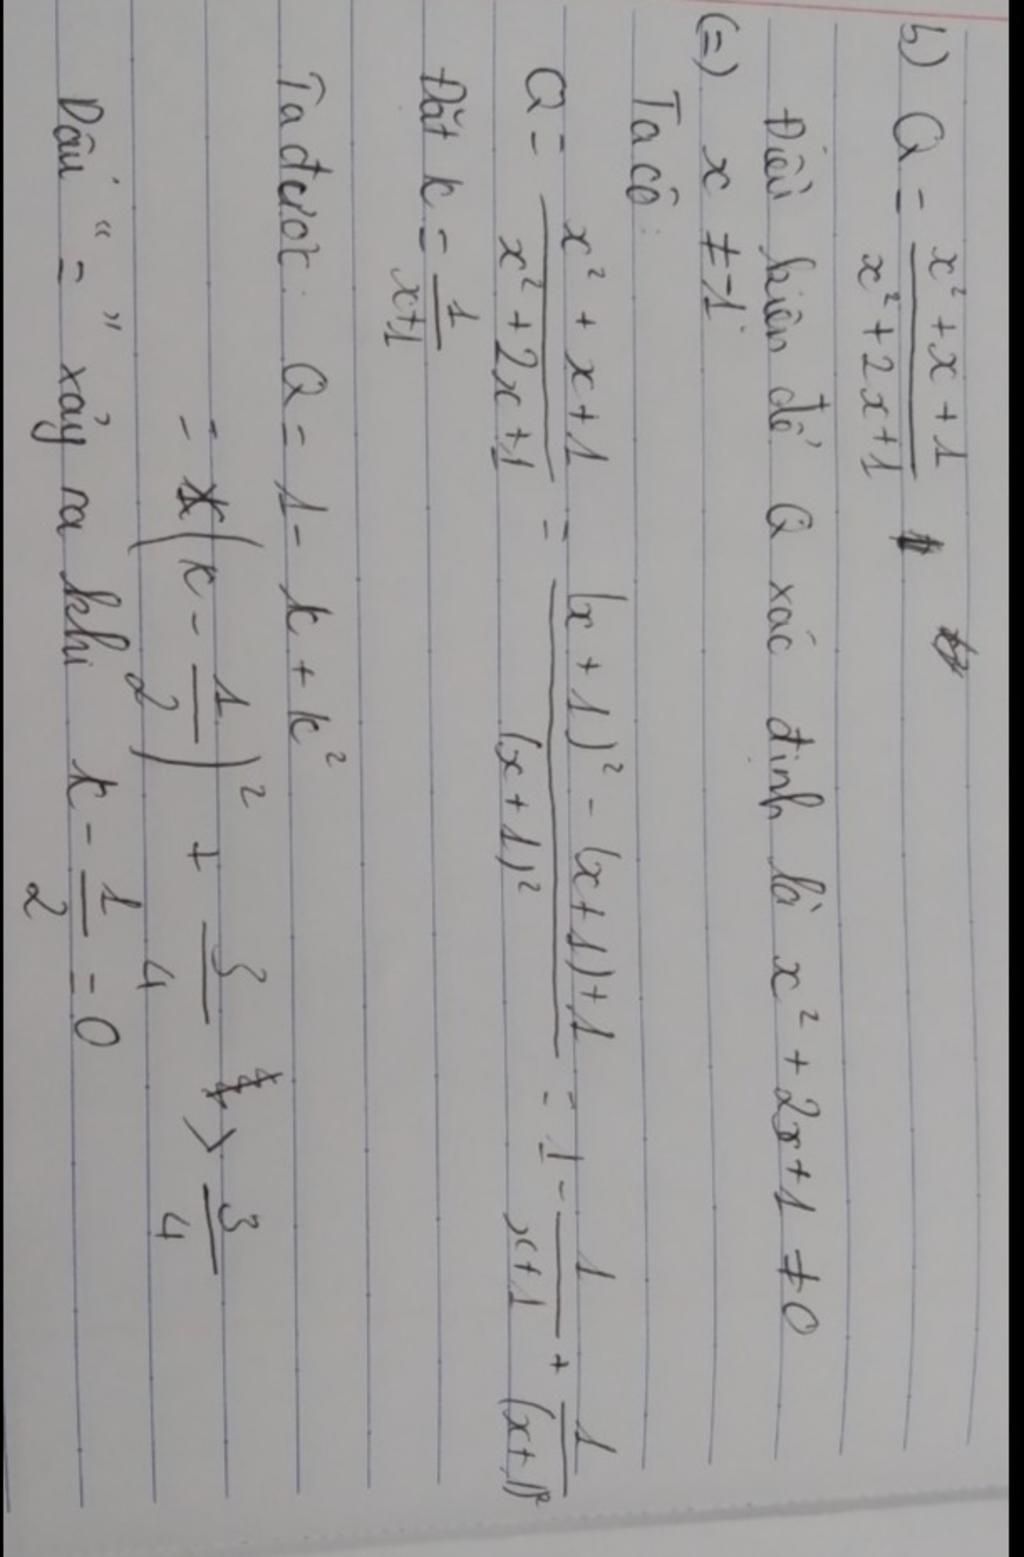 b) Q = (x² + x + 1)/(x² + 2x + 1)
Điều kiện để Q xác định là x² + 2x + 1 ≠ 0
(=) x ≠ -1
Ta có:
Q = (x² + x + 1)/(x² + 2x + 1) = ((x + 1)² - (x + 1) + 1)/(x + 1)² = 1 - 1/(x+1) + 1/(x+1)²
Đặt k = 1/(x+1)
Ta được: Q = 1 - k + k²
= (k - 1/2)² + 3/4 > 3/4
Dấu "=" xảy ra khi k - 1/2 = 0